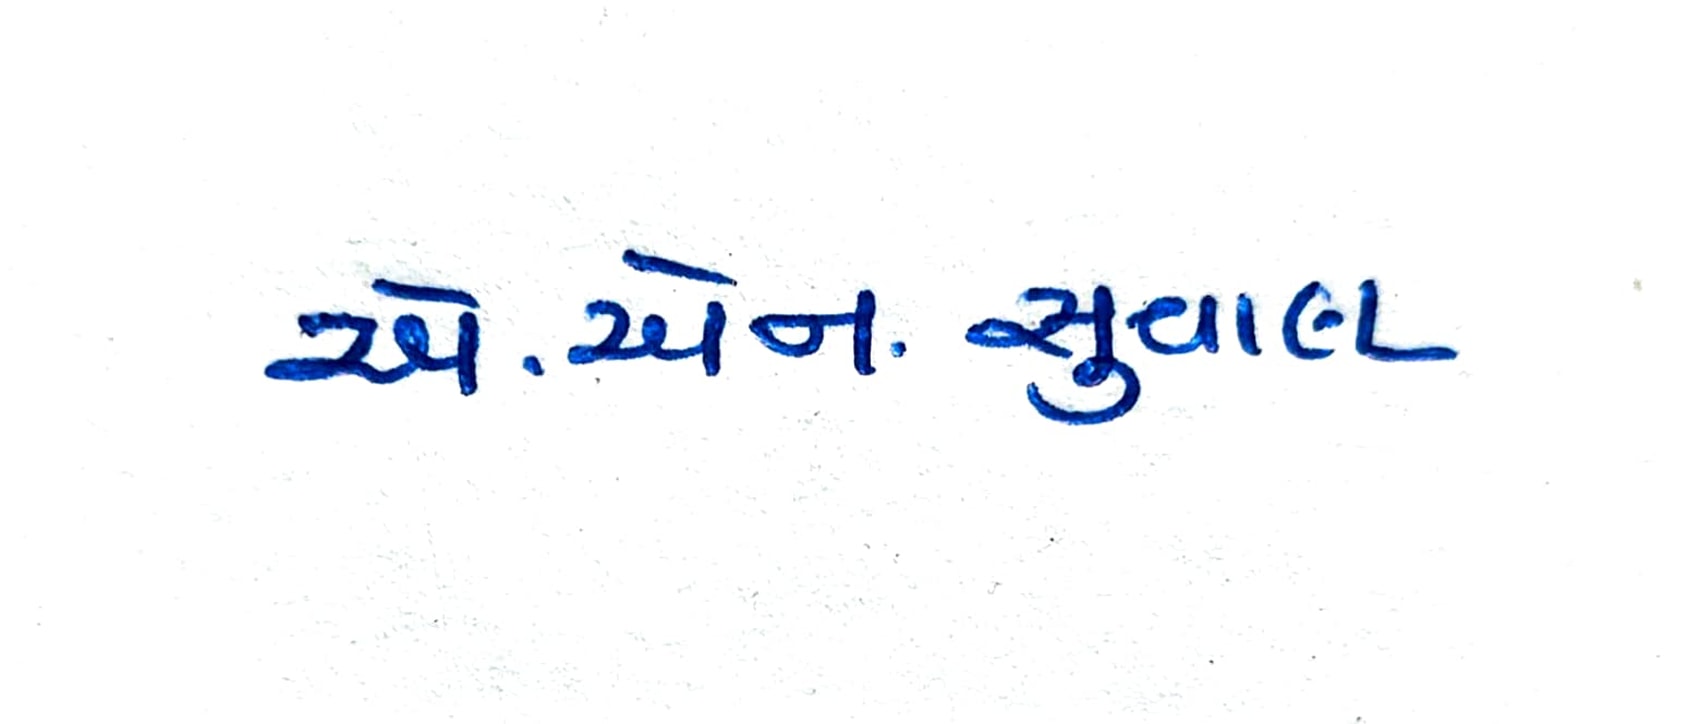 એ. એન. સુવાલ